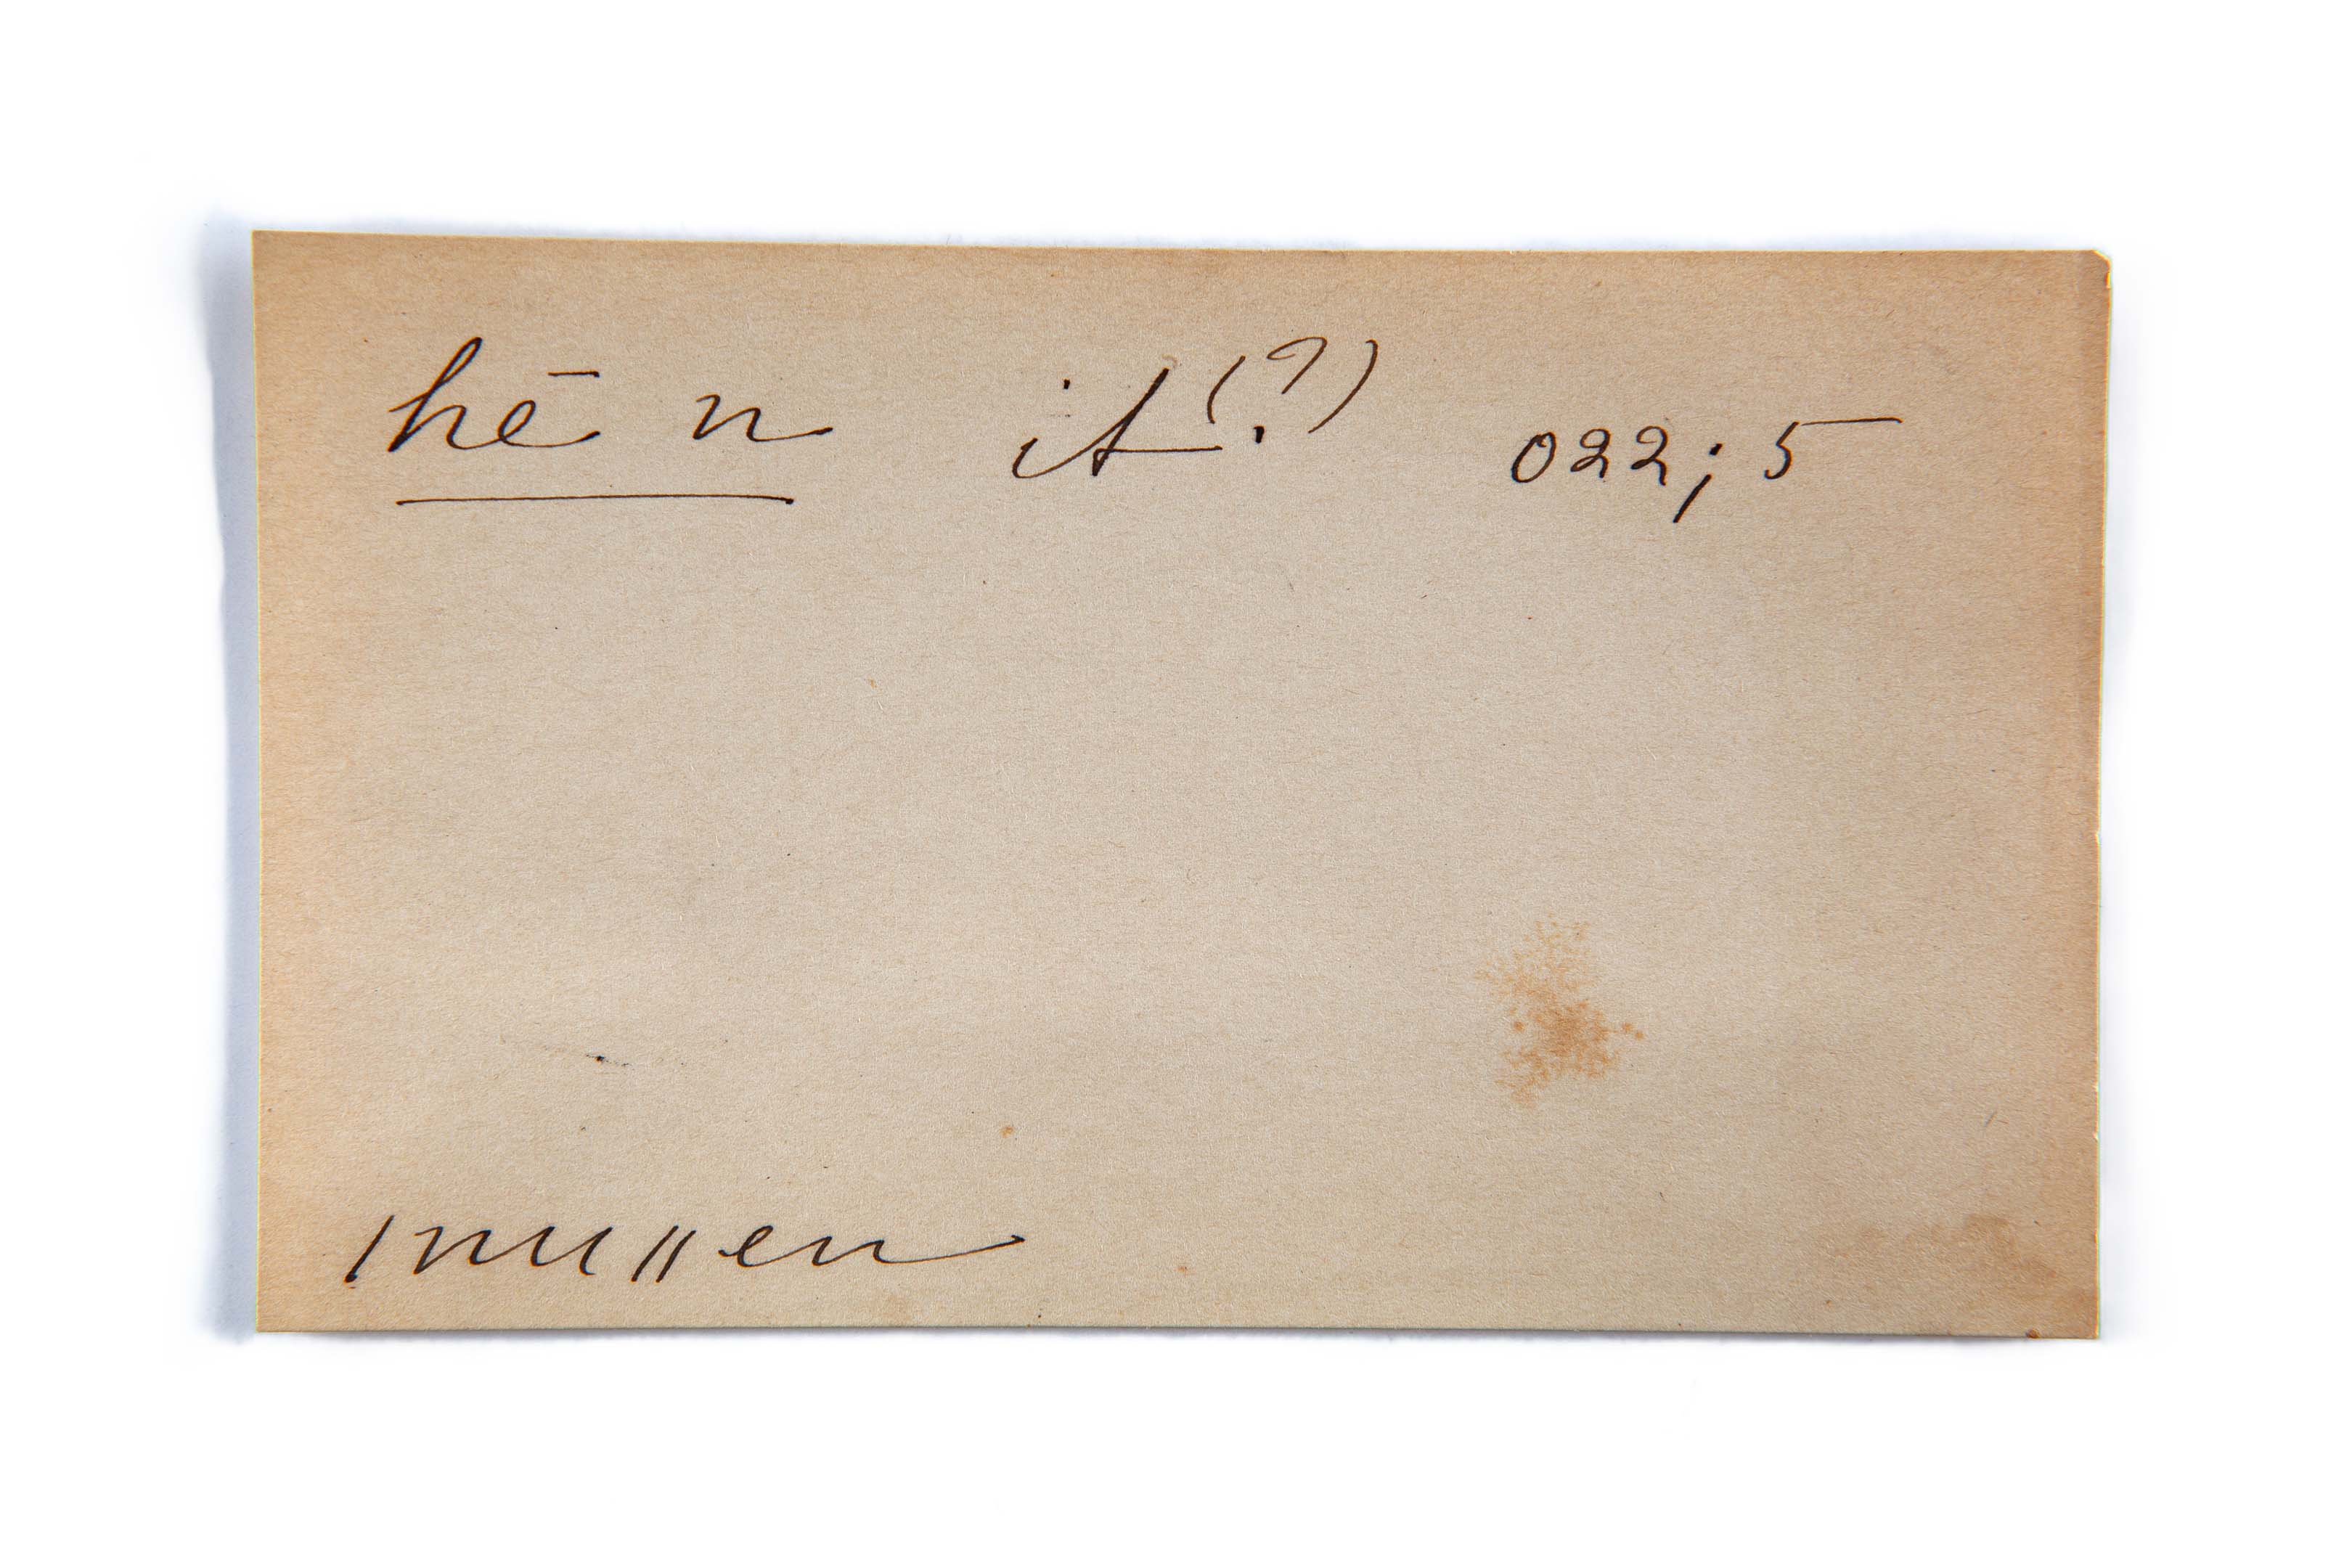 hē n it(?) 022; 5